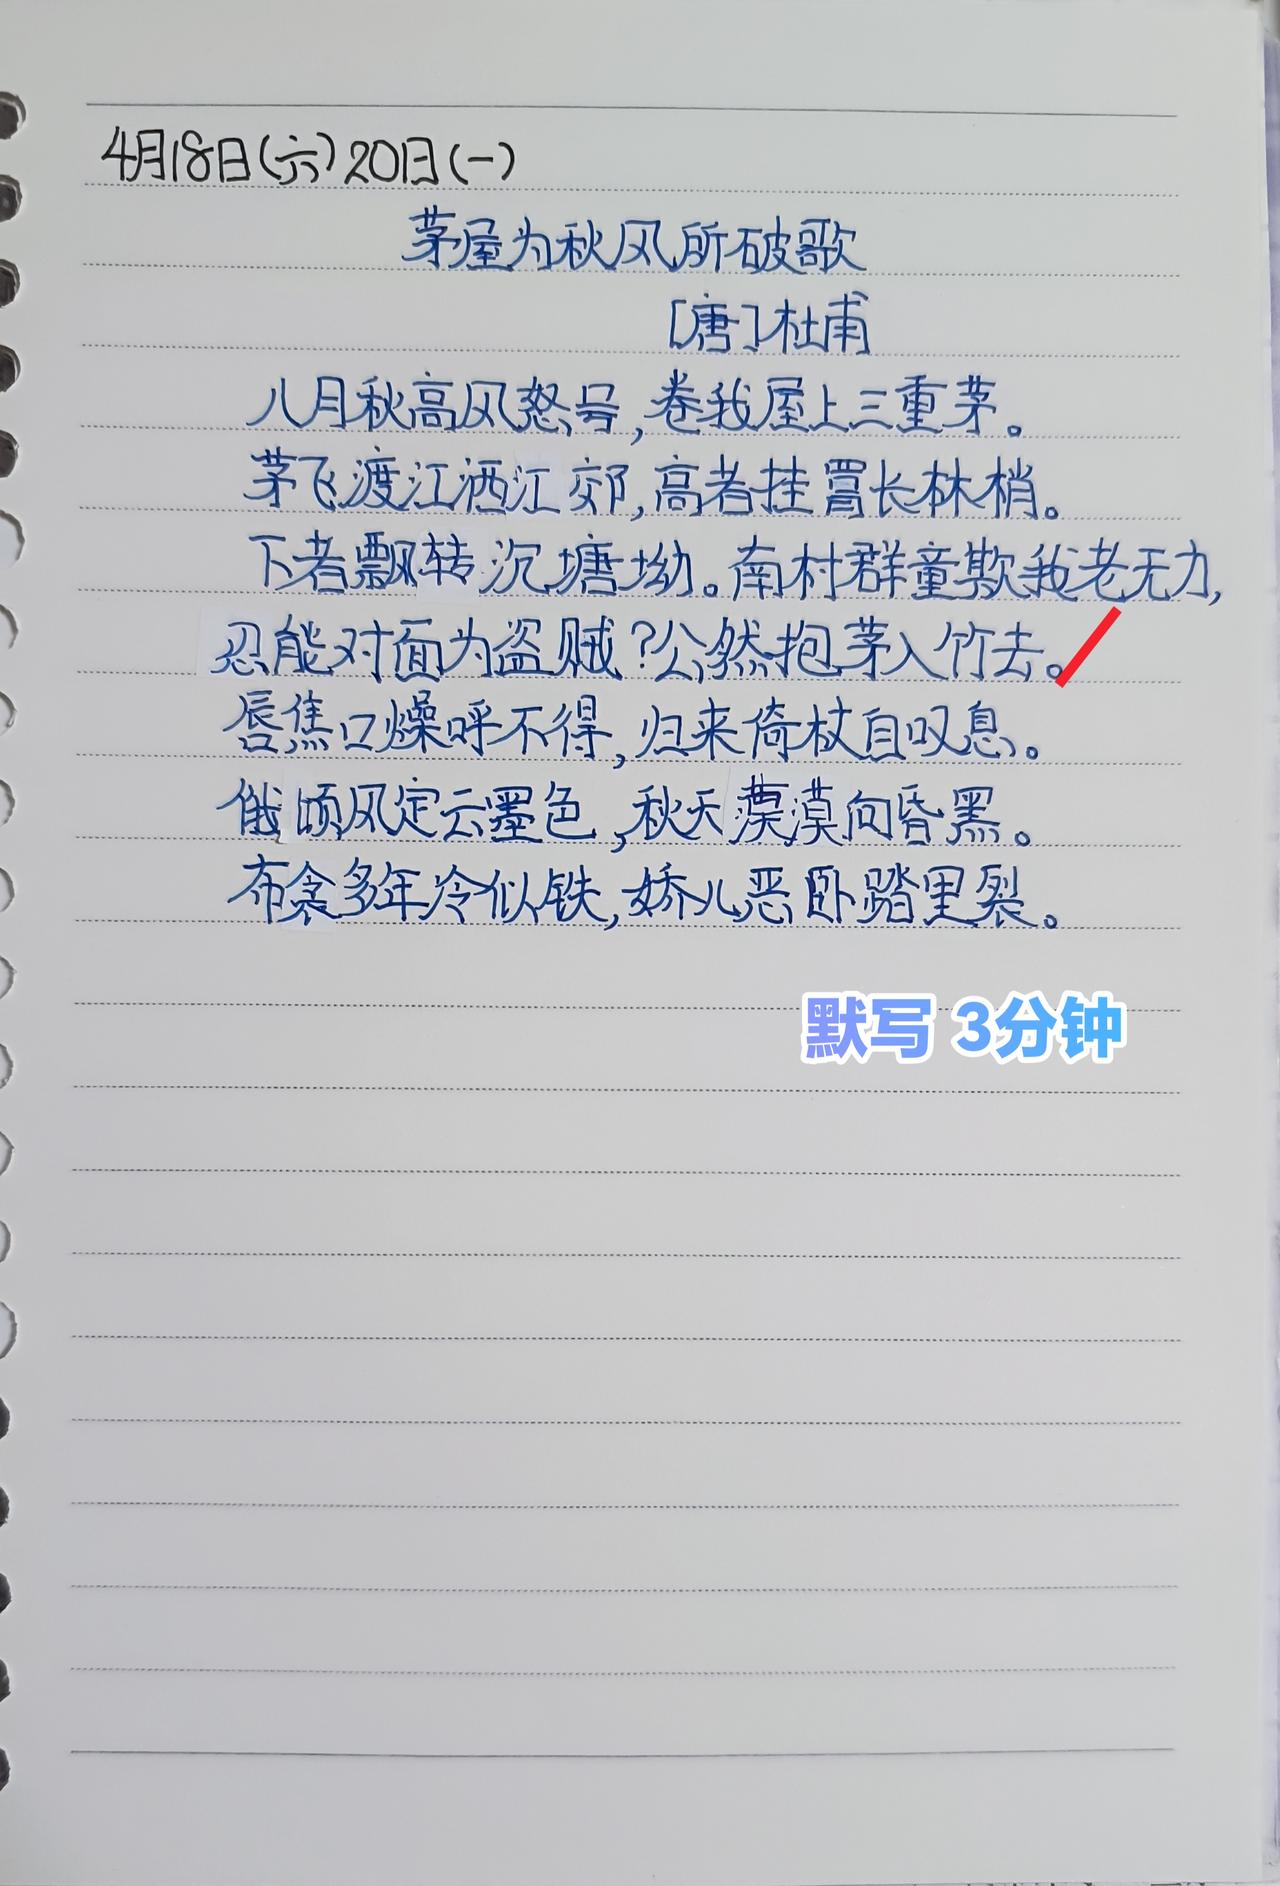 4月18日(六)20日(一)
茅屋为秋风所破歌
[唐]杜甫
八月秋高风怒号,卷我屋上三重茅。
茅飞渡江洒江郊,高者挂罥长林梢。
下者飘转沉塘坳。南村群童欺我老无力,
忍能对面为盗贼?公然抱茅入竹去。
唇焦口燥呼不得,归来倚杖自叹息。
俄顷风定云墨色,秋天漠漠向昏黑。
布衾多年冷似铁,娇儿恶卧踏里裂。
默写 3分钟